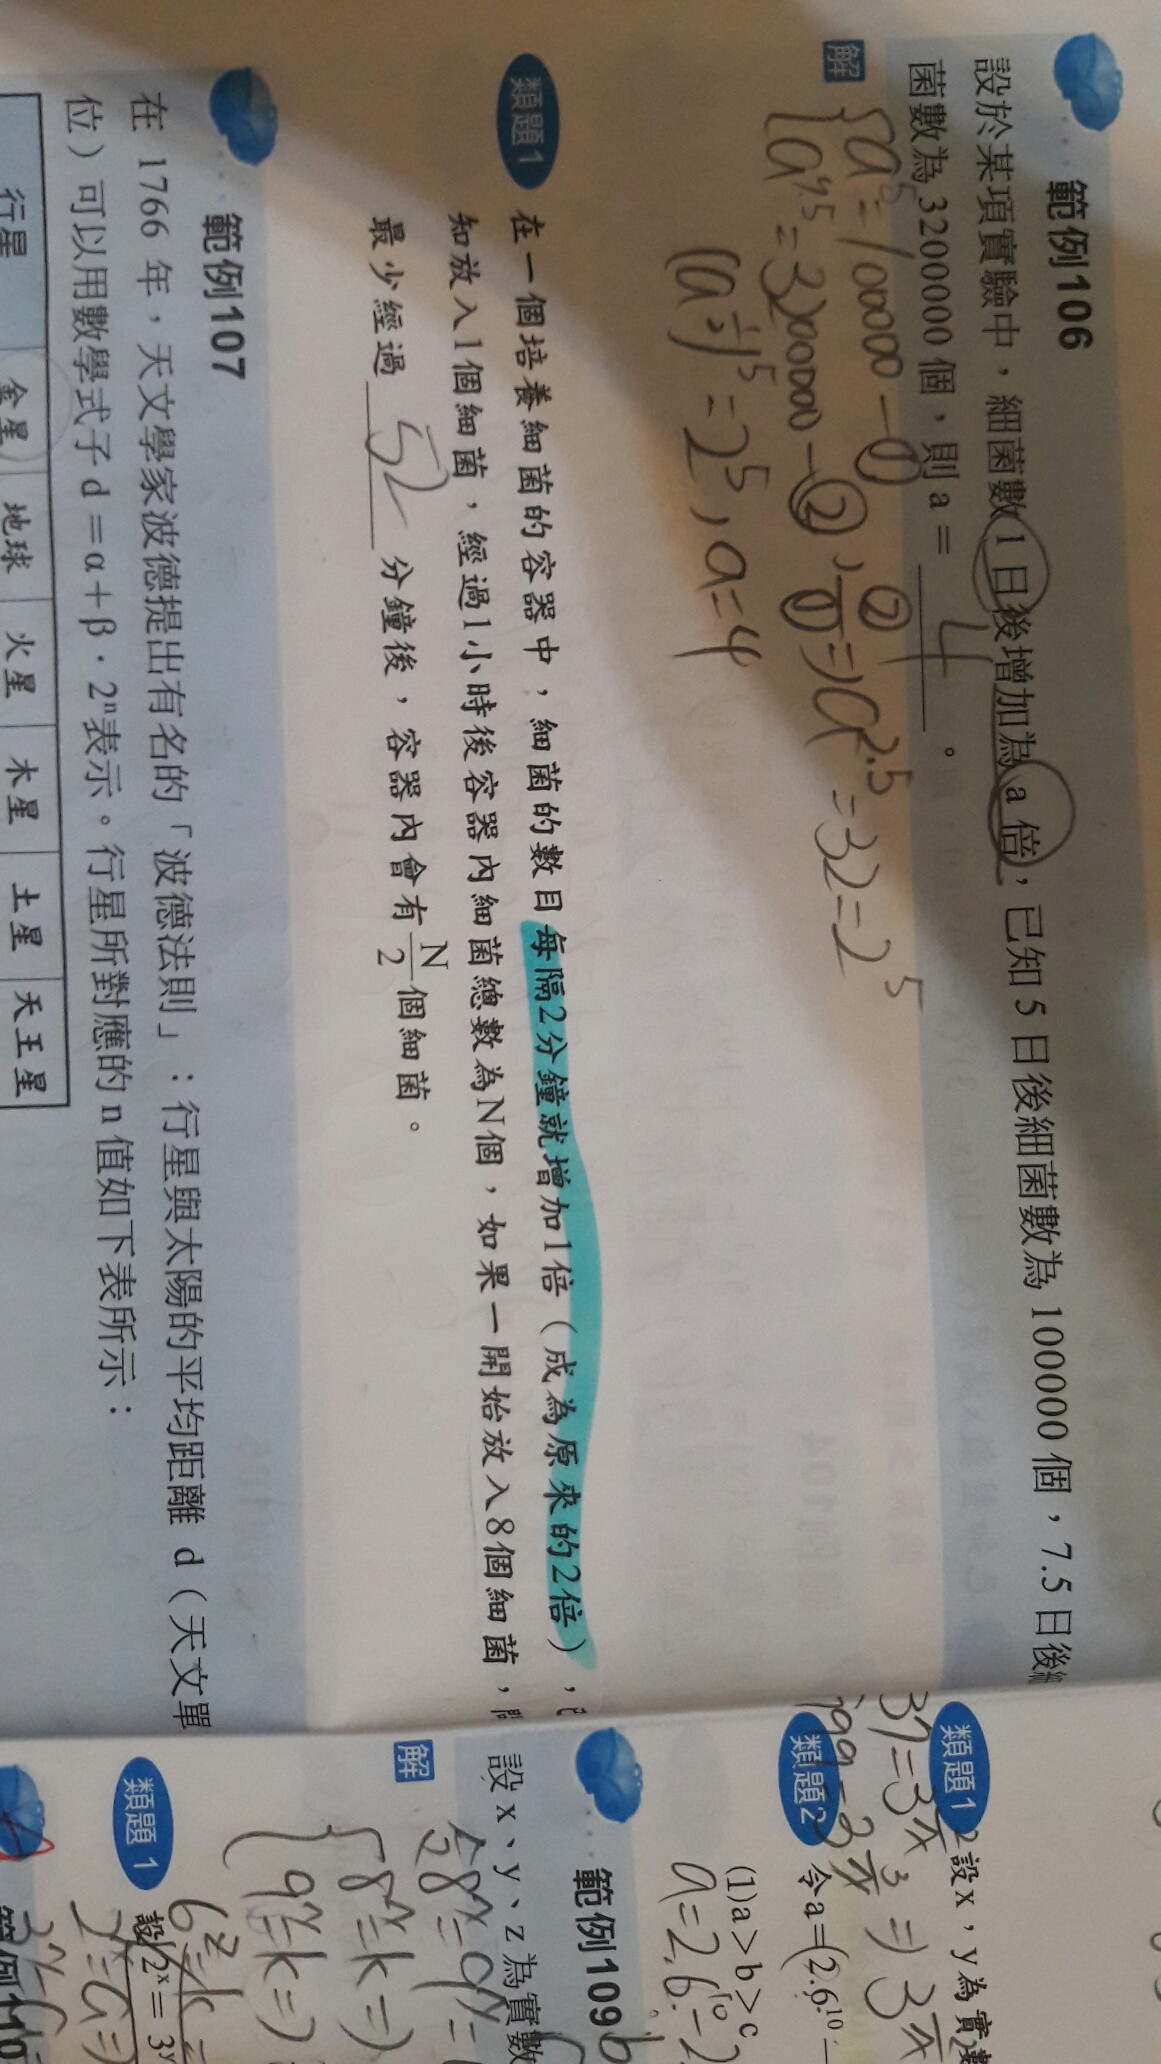 範例106
設於某項實驗中，細菌數1日後增加為a倍，已知5日後細菌數為100000個，7.5日後細
菌數為3200000個，則a=4。
解
{a⁵=100000—①
{a^7.5=3200000—②，②/①⇒a^2.5=32=2⁵
(a^½)⁵=2⁵，a=4
類題1
在一個培養細菌的容器中，細菌的數目每隔2分鐘就增加1倍（成為原來的2倍），
知放入1個細菌，經過1小時後容器內細菌總數為N個，如果一開始放入8個細菌，
最少經過52分鐘後，容器內會有N/2個細菌。
範例107
在1766年，天文學家波德提出有名的「波德法則」：行星與太陽的平均距離d（天文單
位）可以用數學式子d=α+β·2ⁿ表示。行星所對應的n值如下表所示：
行星 金星 地球 火星 木星 土星 天王星
類題1
設x，y為實數
類題2
令a=(2.6¹⁰
(1)a>b>c
範例109
設x、y、z為實數
解
8ˣ=k⇒
9ʸ=k⇒
類題1
設2ˣ=3ʸ